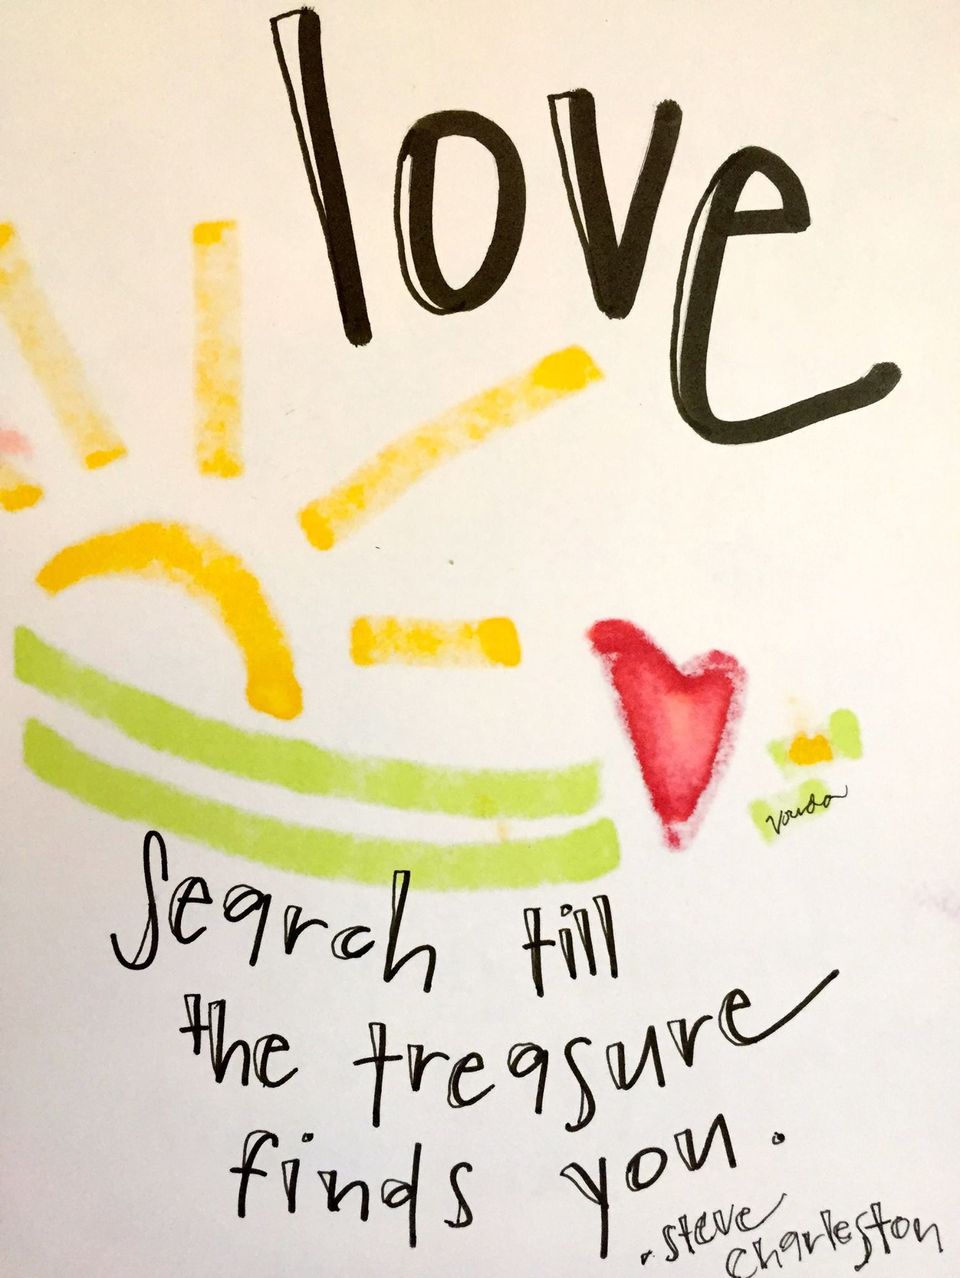 love
vonda
Search till
the treasure
finds you.
. steve
charleston